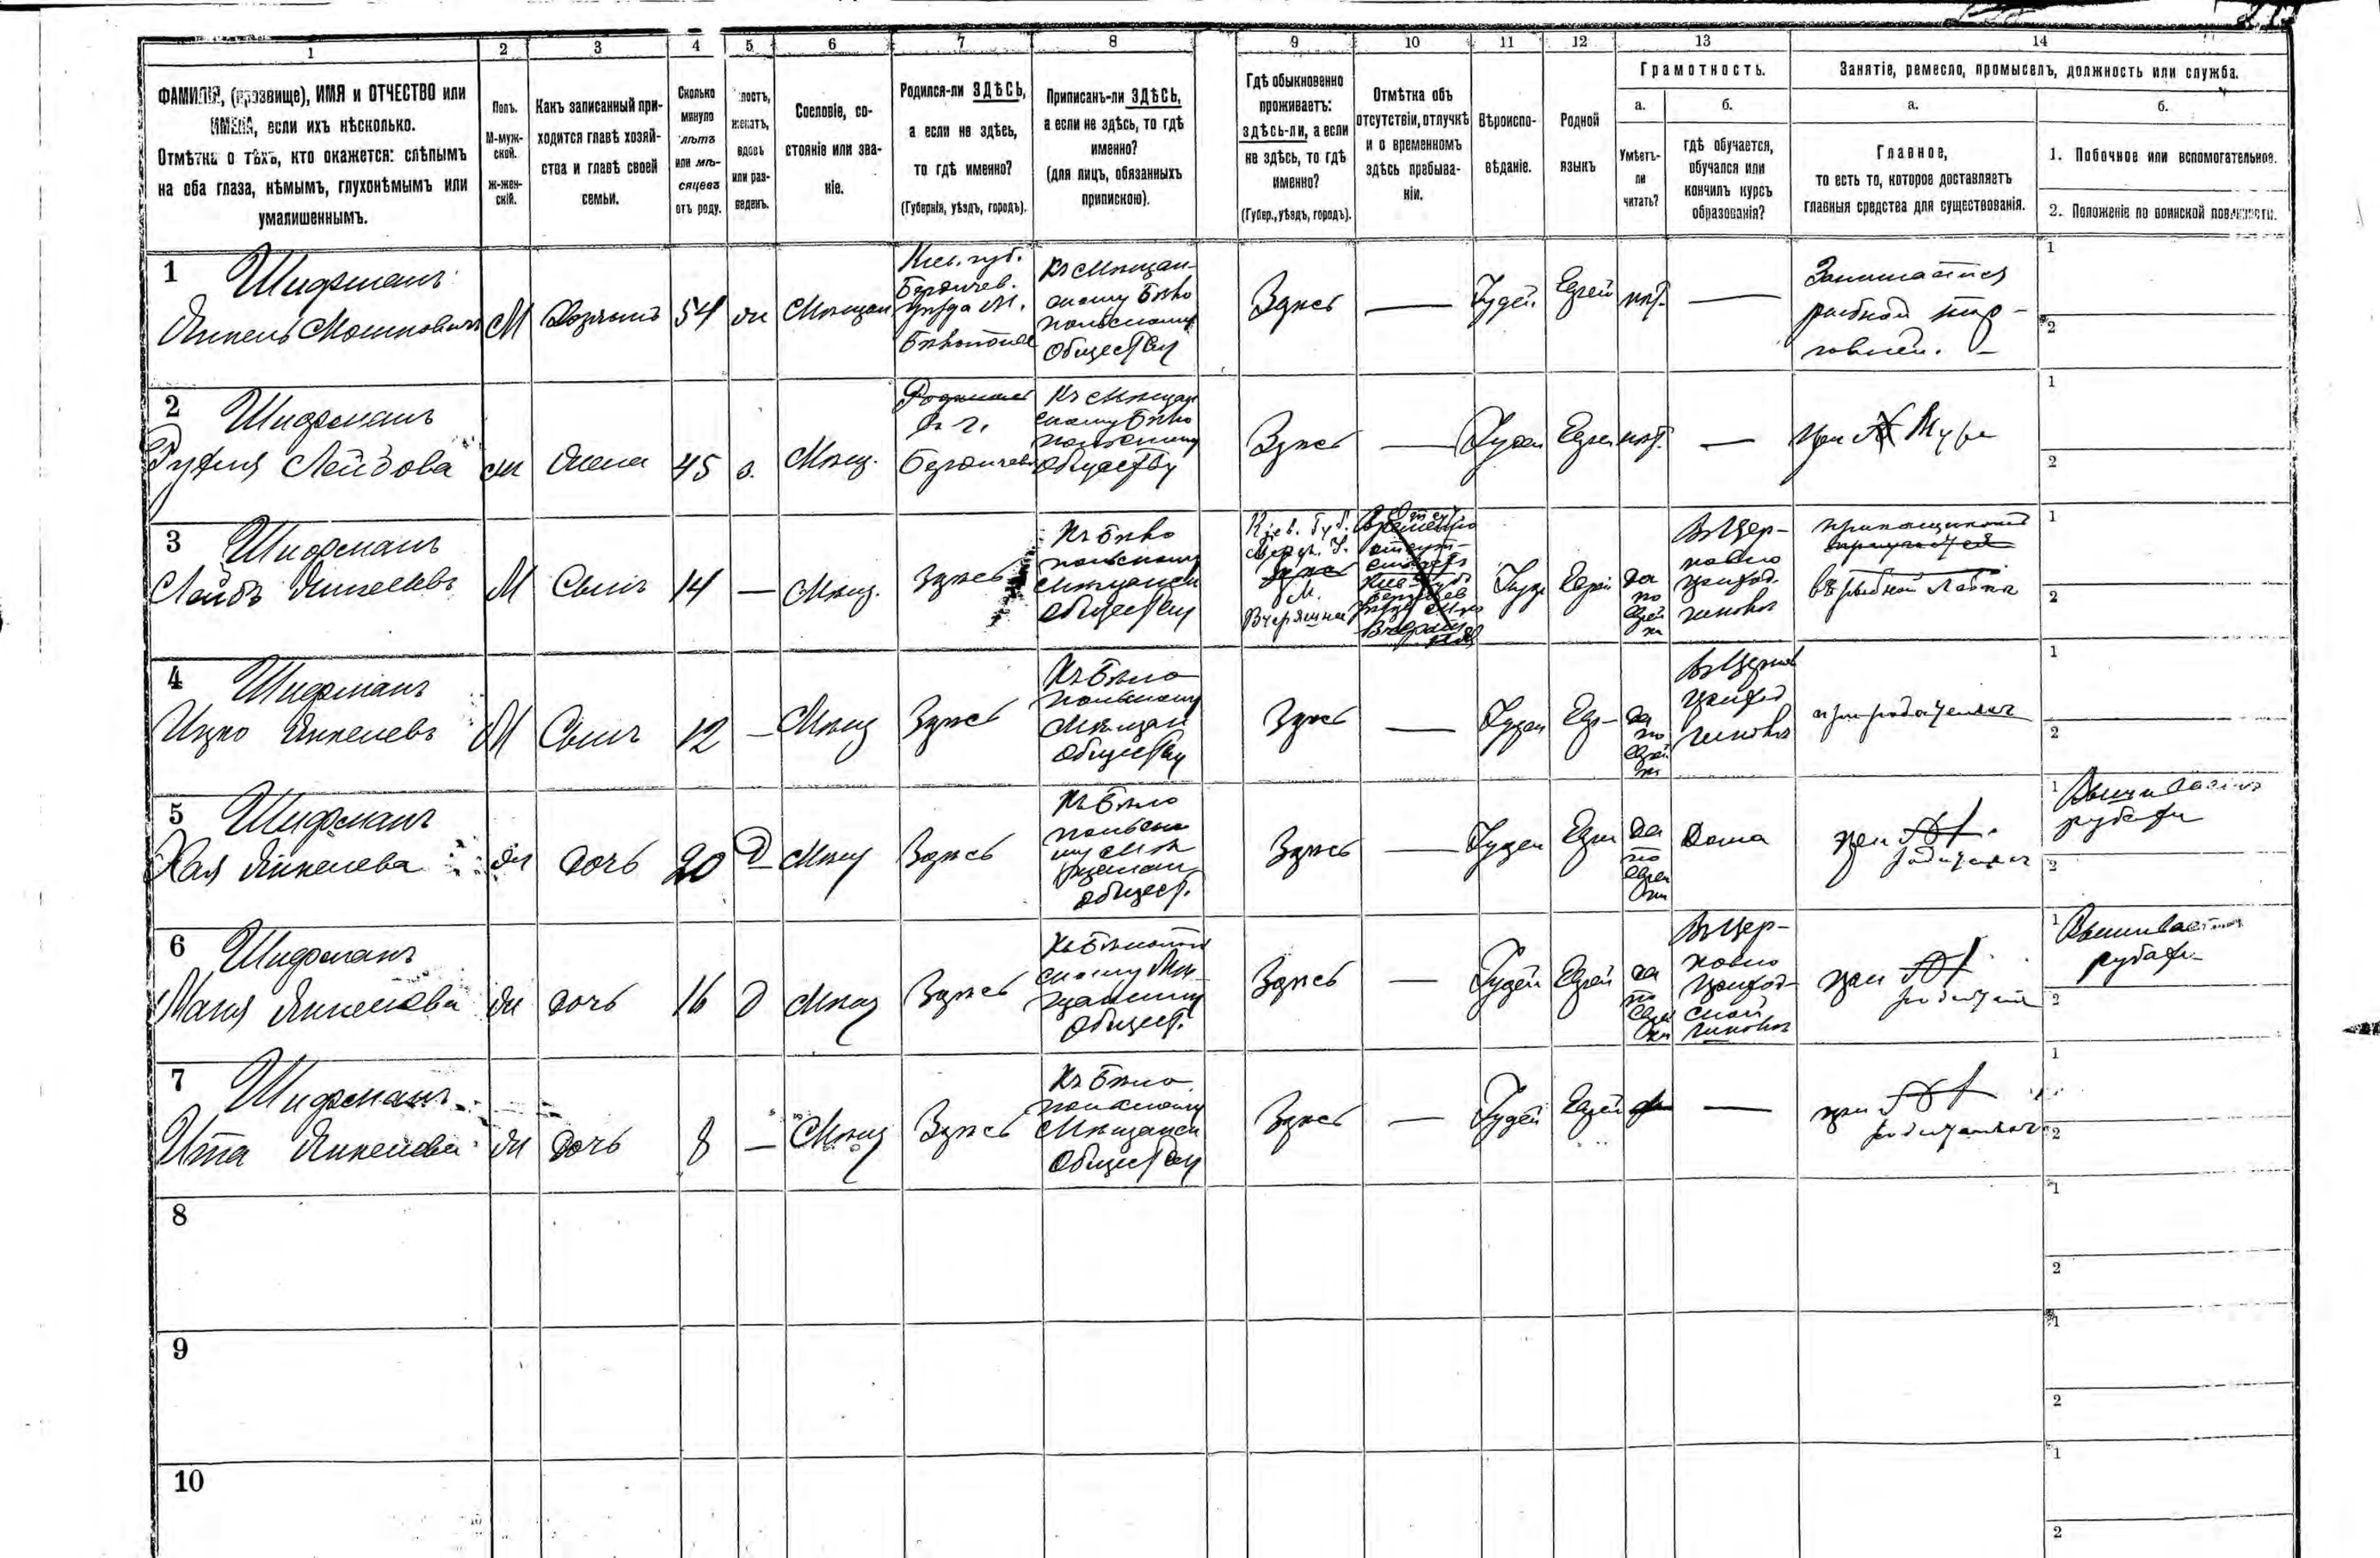 1
2
3
4
5
6
7
8
9
10
11
12
13
14
ФАМИЛІЯ, (прозвище), ИМЯ и ОТЧЕСТВО или
ИМЕНА, если ихъ нѣсколько.
Отмѣтка о тѣхъ, кто окажется: слѣпымъ
на оба глаза, нѣмымъ, глухонѣмымъ или
умалишеннымъ.
Полъ.
М-муж-
ской.
Ж-жен-
скій.
Какъ записанный при-
ходится главѣ хозяй-
ства и главѣ своей
семьи.
Сколько
минуло
лѣтъ
или мѣ-
сяцевъ
отъ роду.
лостъ,
женатъ,
вдовъ
или раз-
веденъ.
Сословіе, со-
стояніе или зва-
ніе.
Родился-ли ЗДѢСЬ,
а если не здѣсь,
то гдѣ именно?
(Губернія, уѣздъ, городъ).
Приписанъ-ли ЗДѢСЬ,
а если не здѣсь, то гдѣ
именно?
(для лицъ, обязанныхъ
припискою).
Гдѣ обыкновенно
проживаетъ:
здѣсь-ли, а если
не здѣсь, то гдѣ
именно?
(Губер., уѣздъ, городъ).
Отмѣтка объ
отсутствіи, отлучкѣ
и о временномъ
здѣсь пребыва-
ніи.
Вѣроиспо-
вѣданіе.
Родной
языкъ
Грамотность.
а.
Умѣетъ-
ли
читать?
б.
гдѣ обучается,
обучался или
кончилъ курсъ
образованія?
Занятіе, ремесло, промыселъ, должность или служба.
а.
Главное,
то есть то, которое доставляетъ
главныя средства для существованія.
б.
1. Побочное или вспомогательное.
2. Положеніе по воинской повинности.
1
Шифманъ
Янкель Мошковичъ
М
Хозяинъ
54
Мѣщан
Кіев. губ.
Бердичев.
уѣзда м.
Къ мѣщан-
скому Бѣло
польскому
Обществу
Здѣсь
—
Іудей
Еврей
нѣт.
—
Занимается
рыбной тор-
говлей.
1
2
2
Шифманъ
Лейбова
Жена
45
з.
Мѣщ.
Родилась
в г.
Бердичевѣ
Къ мѣщан
скому Бѣло
польскому
Обществу
Здѣсь
—
Іудей
Еврей
нѣт.
—
при Мужѣ
1
2
3
Шифманъ
Лейбъ Янкелевъ
М
Сынъ
14
—
Мѣщ.
Здѣсь
Къ Бѣло
польскому
Мѣщанск
обществу
Кіев. Губ.
Берд. У.
Здѣсь
М.
Вчерайше
Іуде
Еврей
да
по
еврей
ски
Въ Цер-
ковно
приход.
училищѣ
прикащикомъ
въ рыбной лавкѣ
1
2
4
Шифманъ
Ицко Янкелевъ
М
Сынъ
12
—
Мѣщ
Здѣсь
Къ Бѣло
польскому
Мѣщан
обществу
Здѣсь
—
Іудей
Евр-
да
по
еврей
ски
Въ Церков
приход
училищѣ
при родителяхъ
1
2
5
Шифманъ
Хая Янкелева
дочь
20
Д
Мѣщ
Здѣсь
Къ Бѣло
польско
му Мѣ
щанском
общест.
Здѣсь
—
Іудей
Евр
да
по
еврей
ски
Дома
при
родителяхъ
1
Вышиваетъ
рубахи
2
6
Шифманъ
Маня Янкелева
дочь
16
Д
Мѣщ
Здѣсь
Къ Бѣлополь
скому Мѣ-
щанскому
общест.
Здѣсь
—
Іудей
Еврей
да
по
еврей
ски
Въ Цер-
ковно
приход-
ской
училищѣ
при
родителяхъ
1
Вышиваетъ
рубахи
2
7
Шифманъ
Ита Янкелева
дочь
8
—
Мѣщ
Здѣсь
Къ Бѣло
польскому
Мѣщанск
Обществу
Здѣсь
—
Іудей
Еврей
—
при
родителяхъ
1
2
8
1
2
9
1
2
10
1
2